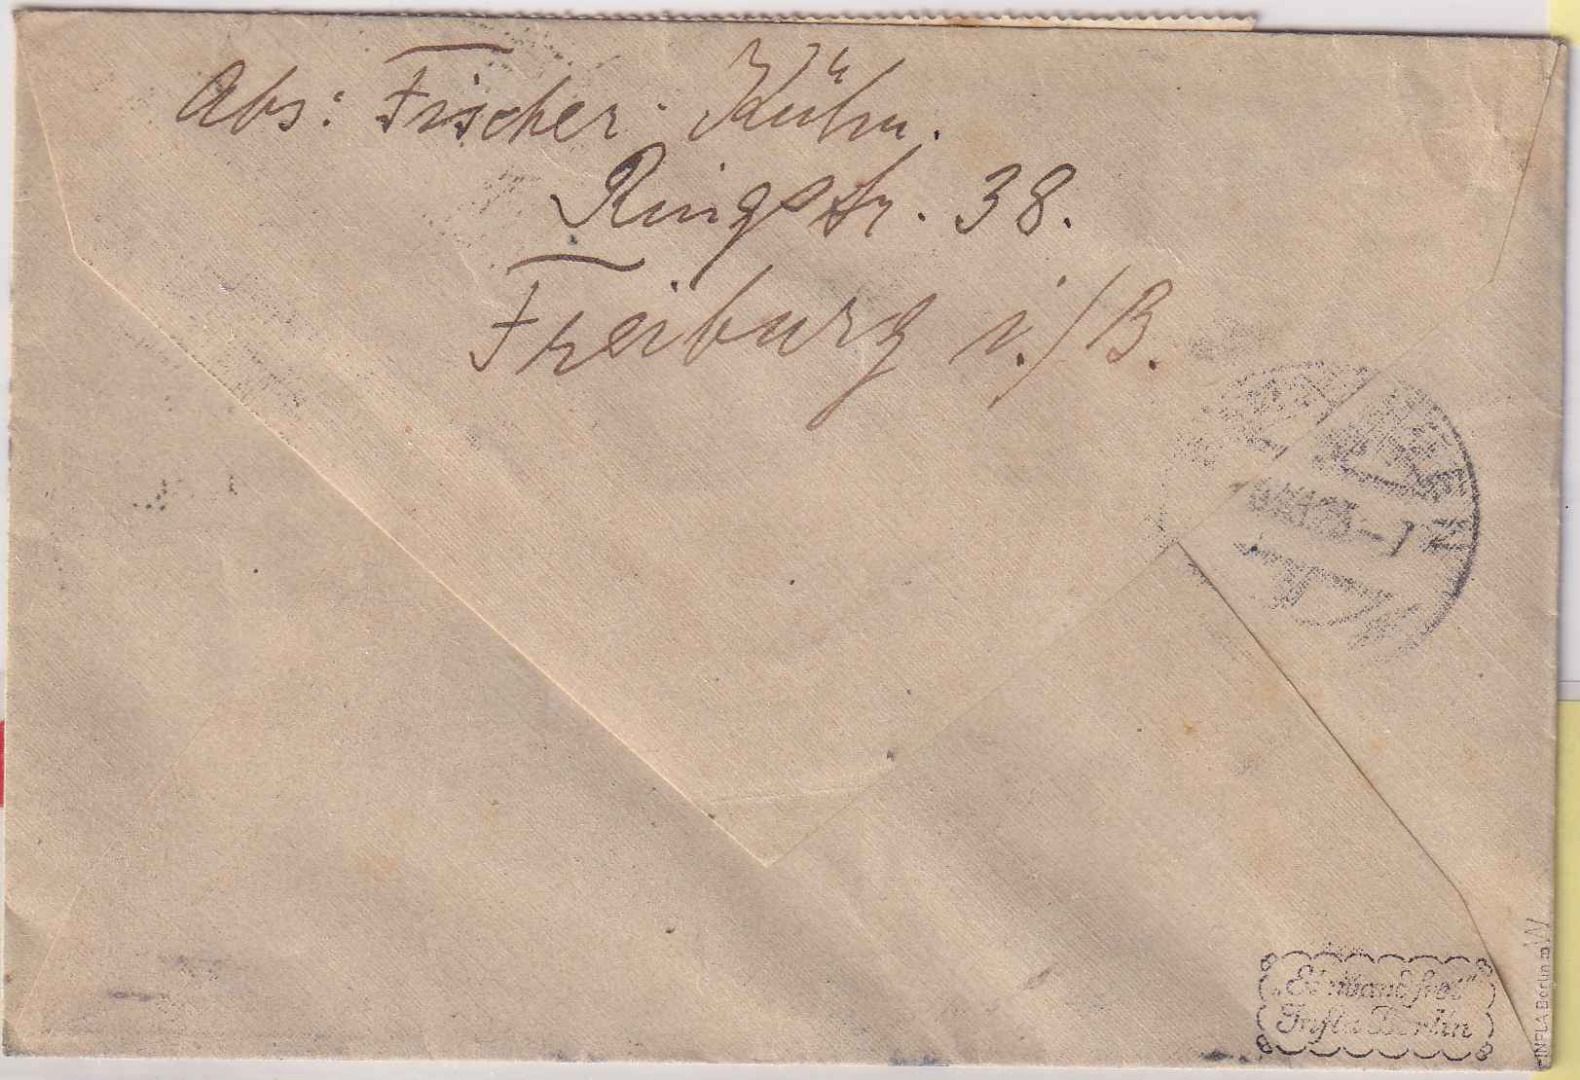 Abs: Fischer-Kühn.
Ringstr. 38.
Freiburg i./B.
"Einwandfrei"
Infla Berlin
INFLA Berlin